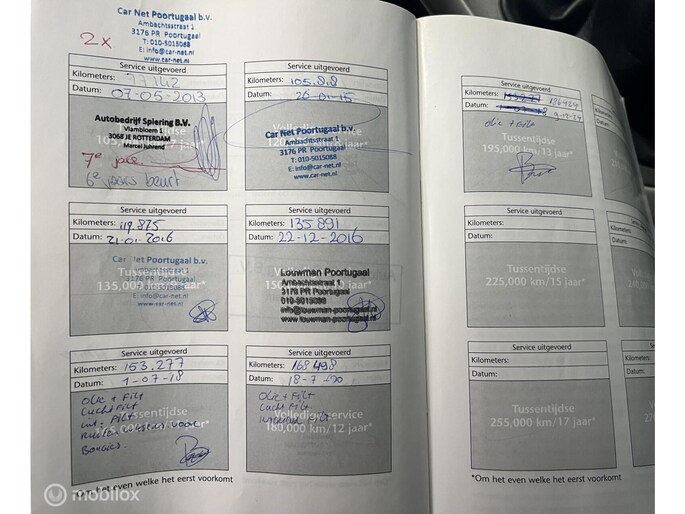 Car Net Poortugaal b.v.
Ambachtsstraat 1
3176 PR Poortugaal
T: 010-5015088
E: info@car-net.nl
www.car-net.nl
2x
Service uitgevoerd
Kilometers: 77142
Datum: 07-05-2013
Autobedrijf Spiering B.V.
Vlambloem 1
3068 JE ROTTERDAM
Marcel Juhrend
105,000 km/
7e jaar
6e jaars beurt
Service uitgevoerd
Kilometers: 105.8.8
Datum: 26-01-15
Car Net Poortugaal b.v.
Ambachtsstraat 1
3176 PR Poortugaal
T: 010-5015088
E: info@car-net.nl
www.car-net.nl
Service uitgevoerd
Kilometers: 119.875
Datum: 21-01-2016
Car Net Poortugaal b.v.
Tussentijdse
135,000 km/
Ambachtsstraat 1
3176 PR Poortugaal
T: 010-5015088
E: info@car-net.nl
www.car-net.nl
Service uitgevoerd
Kilometers: 135891
Datum: 22-12-2016
Louwman Poortugaal
Ambachtsstraat 1
3176 PR Poortugaal
010-5015088
info@louwman-poortugaal.nl
www.louwman-poortugaal.nl
Service uitgevoerd
Kilometers: 153.277
Datum: 1-07-18
Tussentijdse
Olie + Filt
Lucht Filt
int. Filt
Ruiten voor
Bougies.
Service uitgevoerd
Kilometers: 168498
Datum: 18-7-20
Volledige service
180,000 km/12 jaar*
Olie + Filt
Lucht Filt
interieur Filt
*Om het even welke het eerst voorkomt
Service uitgevoerd
Kilometers: 186424
Datum: 9-12-24
olie + filt
Tussentijdse
195,000 km/13 jaar*
Service uitgevoerd
Kilometers:
Datum:
Tussentijdse
225,000 km/15 jaar*
Service uitgevoerd
Kilometers:
Datum:
Tussentijdse
255,000 km/17 jaar*
*Om het even welke het eerst voorkomt
Kilometers:
Datum:
Kilometers:
Datum:
Kilome
Datum:
© mobilox